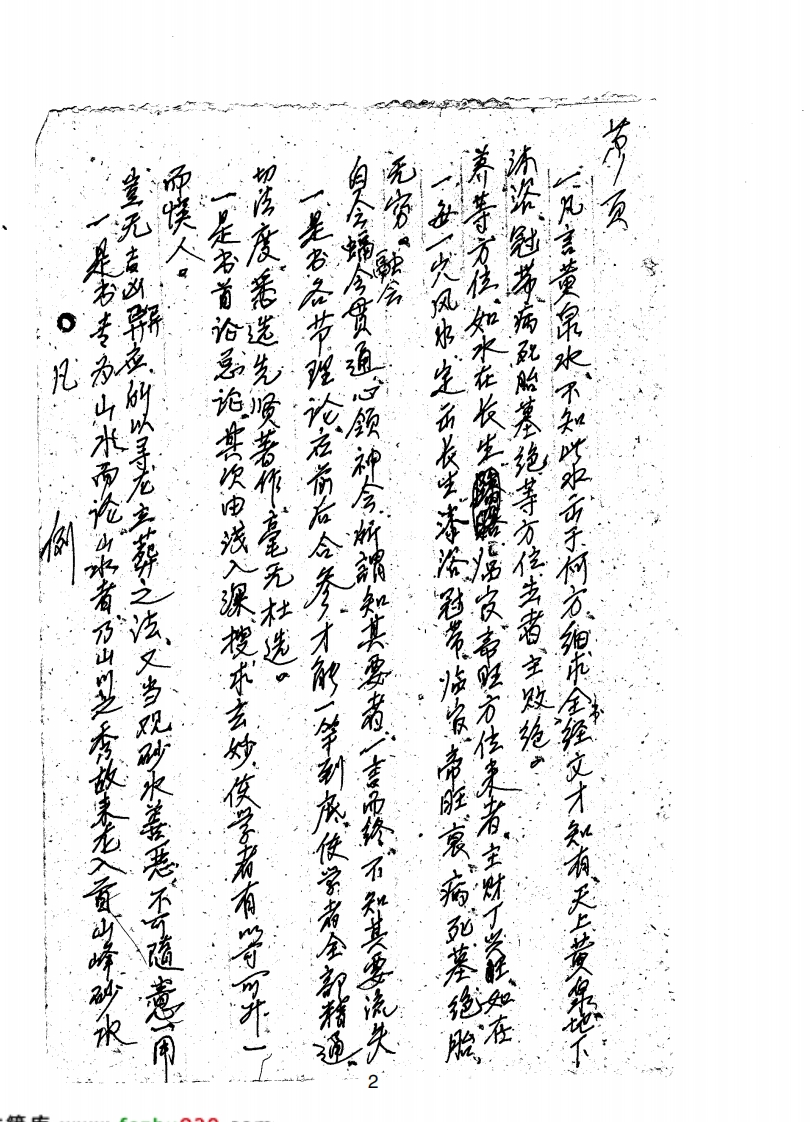 凡 例
一是书专为山水而论山水者乃山川之秀故来龙入首山峰砂水
岂无吉凶异应所以寻龙立葬之法、又当观砂水善恶不可随意一用
而误人。
一是书首论总论其次由浅入深搜求玄妙使学者有以寻可升一
切法度著选先贤著作毫无杜选。
一是书各节理论应前后合参才能一竿到底使学者全部精通。
自会融会贯通心领神会所谓知其要者一言而终不知其要流失
无穷。
一每一穴风水定出长生沐浴冠带临官帝旺衰病死墓绝胎、
养等方位如水在长生临官帝旺方位来者主财丁兴旺如在
沐浴冠带病死胎墓绝等方位生者主败绝。
一凡言黄泉水不知此水出于何方细求全经文才知有天上黄泉地下
第 页
2